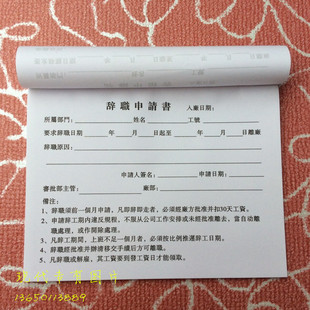 辞職申請書 入廠日期:
所屬部門: 姓名 工號
要求辞職日期 年 月 日起至 年 月 日離廠
辞職原因:
申請人簽名: 申請日期:
審批部主管: 廠部:
備注:
1、辞職須前一個月申請,凡即辞即走者,必須經廠方批准并扣30天工資。
2、申請辞工期内違反規程,不服從公司工作安排或未經批准離去,當自动離
職處理,或作開除處理。
3、凡辞工期間,上班不足一個月者,必須按比例推遲辞工日期。
4、凡辞職經批准并辦清移交手續后方可離職。
5、凡辞職或解雇,其工資要到發工資日才能領取。
13650113889